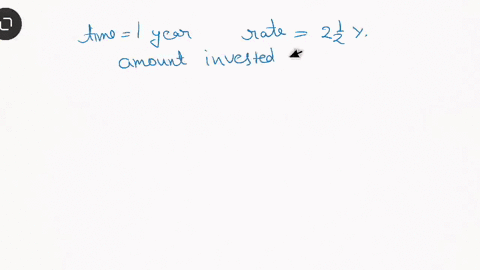 time = 1 year rate = 2 1/2 %.
amount invested